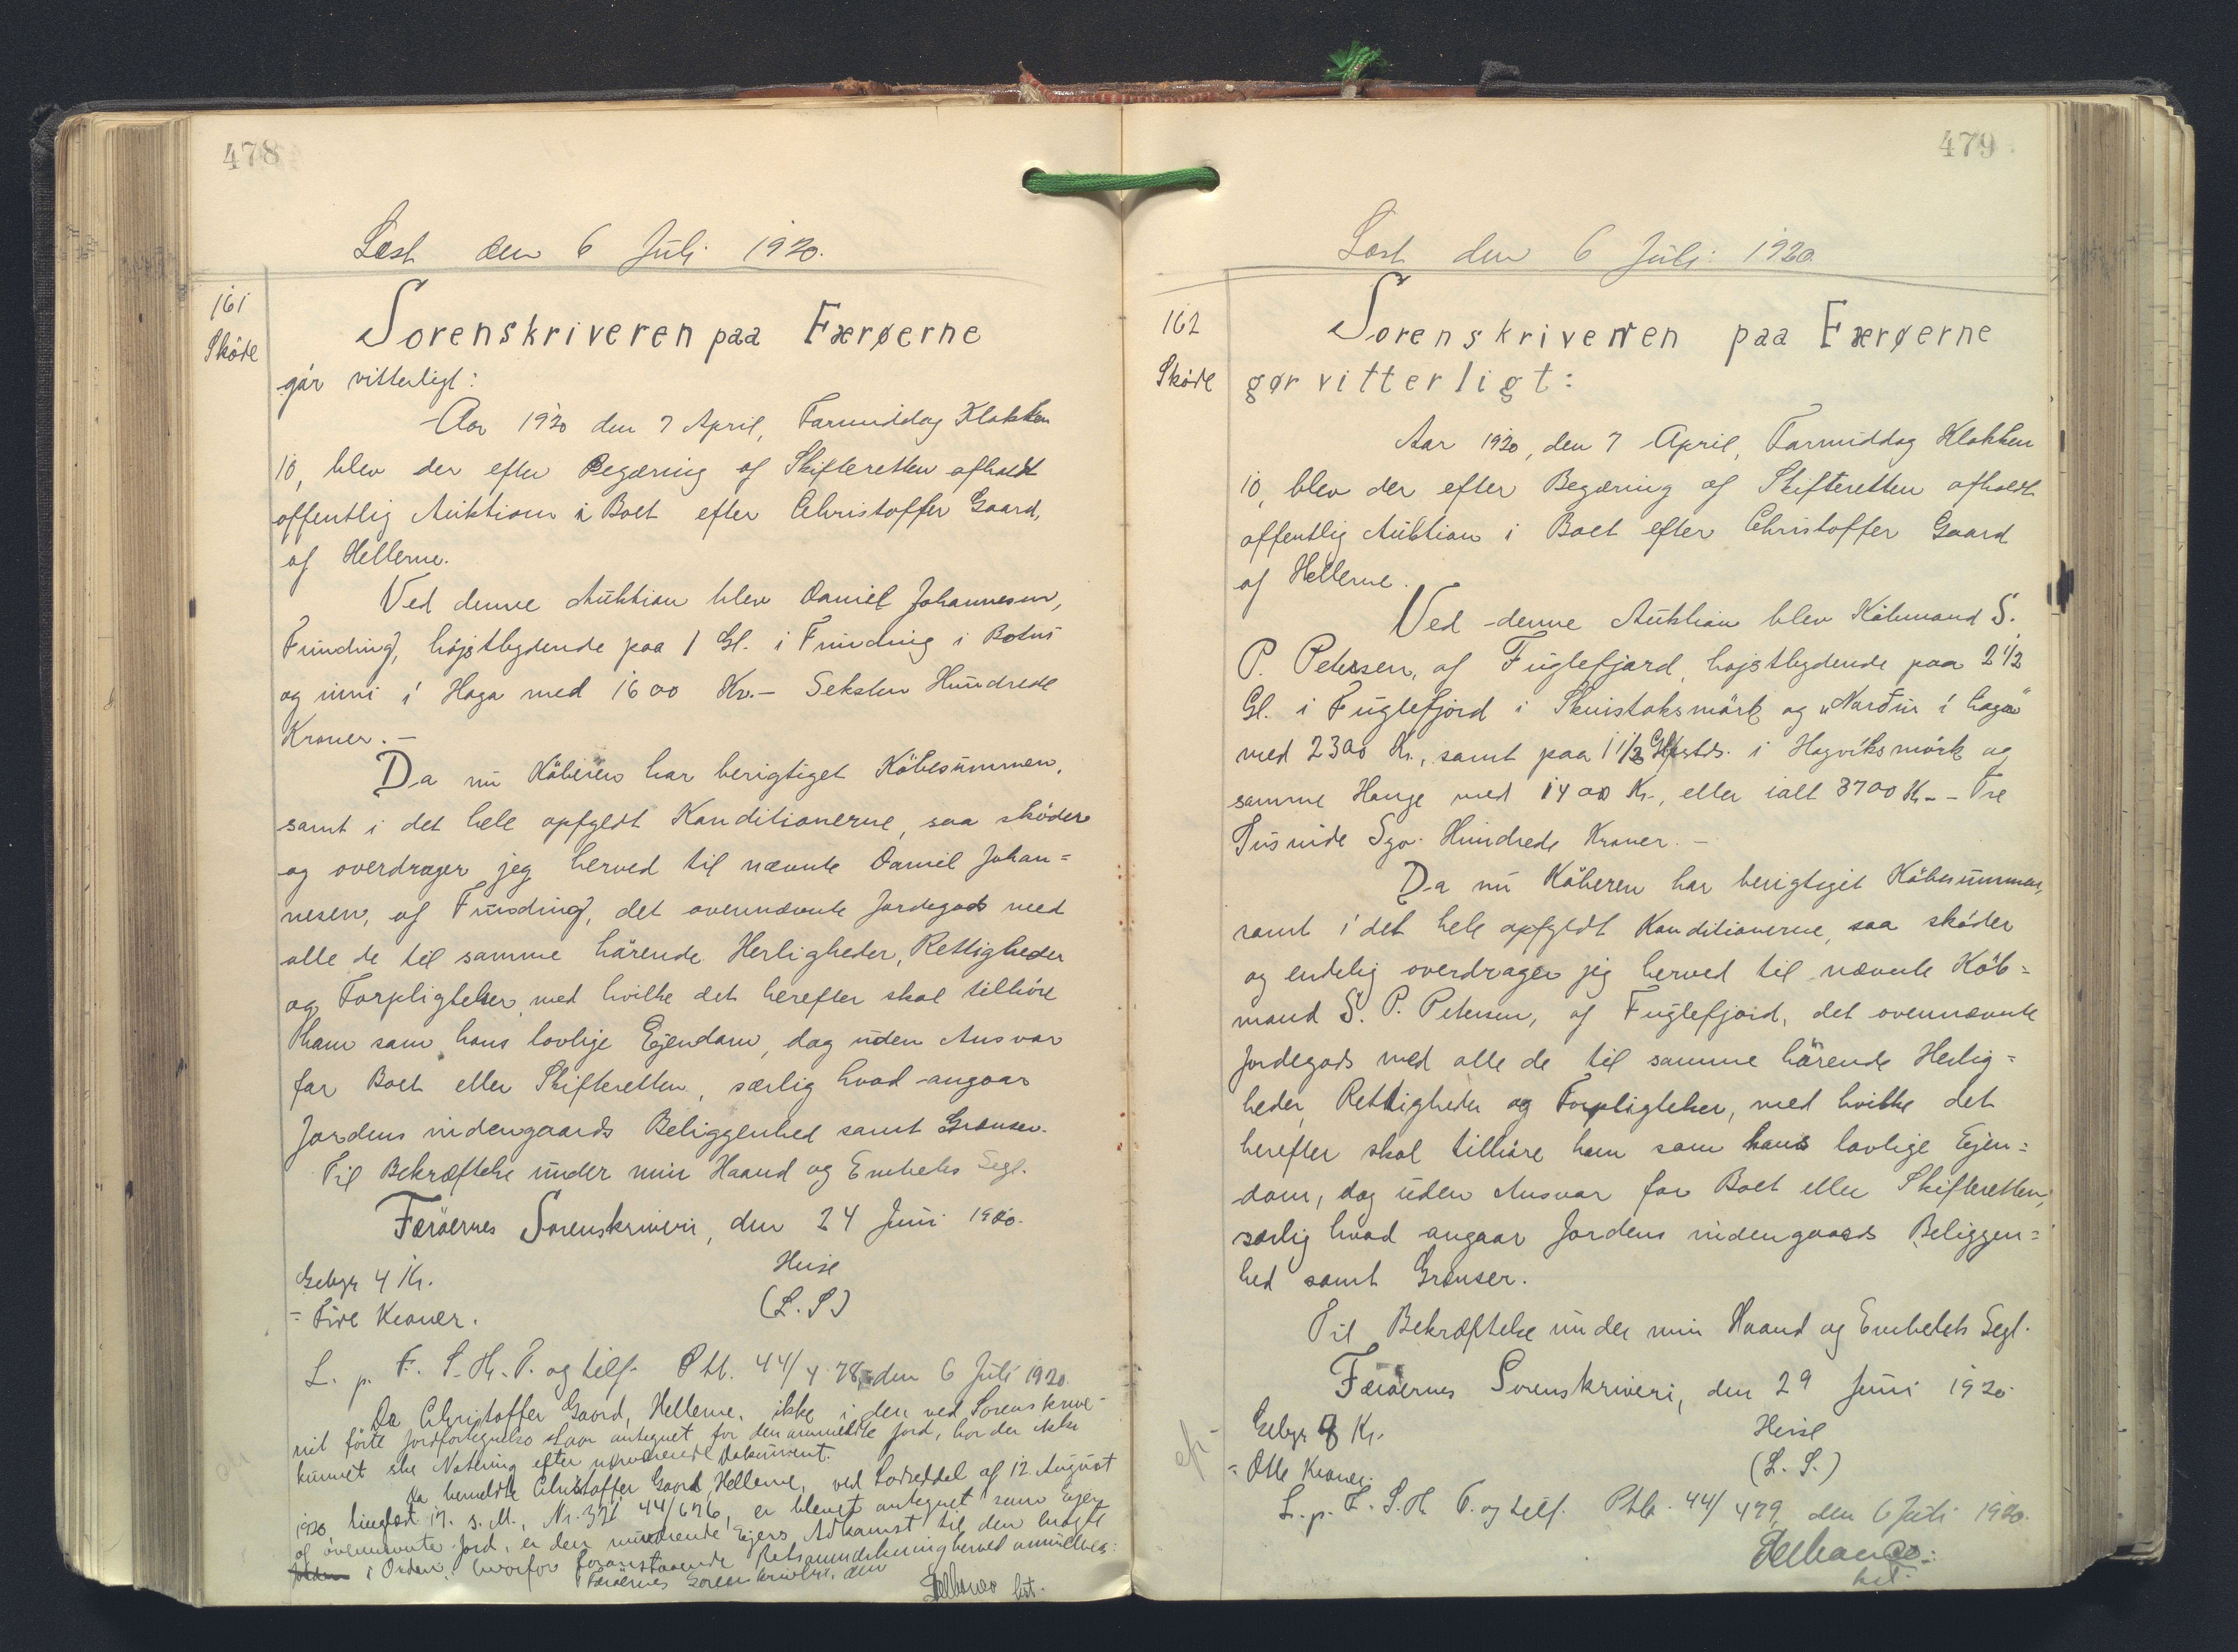 478
Læst den 6 Juli 1920.
161
Sköde
Sorenskriveren paa Færøerne
gör vitterligt:
Aar 1920 den 7 April, Formiddag Klokken
10, blev der efter Begæring af Skifteretten afholdt
offentlig Auktion i Boet efter Christoffer Gaard,
af Hellerne.
Ved denne Auktion blev Daniel Johannesen,
Funding, höjstbydende paa 1 Gl. i Funding i Botni
og inni i Haga med 1600 Kr. - Seksten Hundrede
Kroner. -
Da nu Köberen har berigtiget Köbesummen,
samt i det hele opfyldt Konditionerne, saa sköder
og overdrager jeg herved til nævnte Daniel Johan=
nesen, af Funding, det ovennævnte Jordegods med
alle de til samme hörende Herligheder, Rettigheder
og Forpligtelser, med hvilke det herefter skal tilhöre
ham som hans lovlige Ejendom, dog uden Ansvar
for Boet eller Skifteretten, særlig hvad angaar
Jordens indengaards Beliggenhed samt Grænser.
Til Bekræftelse under min Haand og Embeds Segl.
Færöernes Sorenskriveri, den 24 Juni 1920.
Gebyr 4 Kr.
Heise
= Fire Kroner.
(L. S.)
L. p. F. S. H. T. og tilf. Ptb. 44/478, den 6 Juli 1920.
Da Christoffer Gaard, Hellerne, ikke i den ved Sorenskrive-
riet förte Jordfortegnelse staar antegnet for den anmeldte Jord, har der ikke
kunnet ske Notering efter nærværende Dokument.
Da bemeldte Christoffer Gaard, Hellerne, ved Lodseddel af 12. August
1920, tinglæst 17. s. M., Nr. 321 44/676, er blevet antegnet som Ejer
af ovennævnte Jord, er den nuværende Ejers Adkomst til den bragte
i Orden, hvorfor foranstaaende Retsanmærkning herved annulleres.
Færöernes Sorenskriveri, den
kst.
479
Læst den 6 Juli 1920
162
Sköde
Sorenskriveren paa Færøerne
gør vitterligt:
Aar 1920, den 7 April, Formiddag Klokken
10, blev der efter Begæring af Skifteretten afholdt
offentlig Auktion i Boet efter Christoffer Gaard
af Hellerne.
Ved denne Auktion blev Köbmand S.
P. Petersen, af Fuglefjord, höjstbydende paa 2 1/2
Gl. i Fuglefjord i Skuistoksmörk og „Nordur i haga"
med 2300 Kr., samt paa 1 1/2 Gl. i Hagviksmörk og
samme Hauge med 1400 Kr., eller ialt 3700 Kr. - Tre
Tusinde Syv Hundrede Kroner. -
Da nu Köberen har berigtiget Köbesummen,
samt i det hele opfyldt Konditionerne, saa sköder
og endelig overdrager jeg herved til nævnte Köb=
mand S. P. Petersen, af Fuglefjord, det ovennævnte
Jordegods med alle de til samme hörende Herlig=
heder, Rettigheder og Forpligtelser, med hvilke det
herefter skal tilhöre ham som hans lovlige Ejen=
dom, dog uden Ansvar for Boet eller Skifteretten,
særlig hvad angaar Jordens indengaards Beliggen=
hed samt Grænser.
Til Bekræftelse under min Haand og Embeds Segl.
Færöernes Sorenskriveri, den 29 Juni 1920.
Gebyr 8 Kr.
Heise
= Otte Kroner.
(L. S.)
L. p. F. S. H. T. og tilf. Ptb. 44/479, den 6 Juli 1920.
kst.